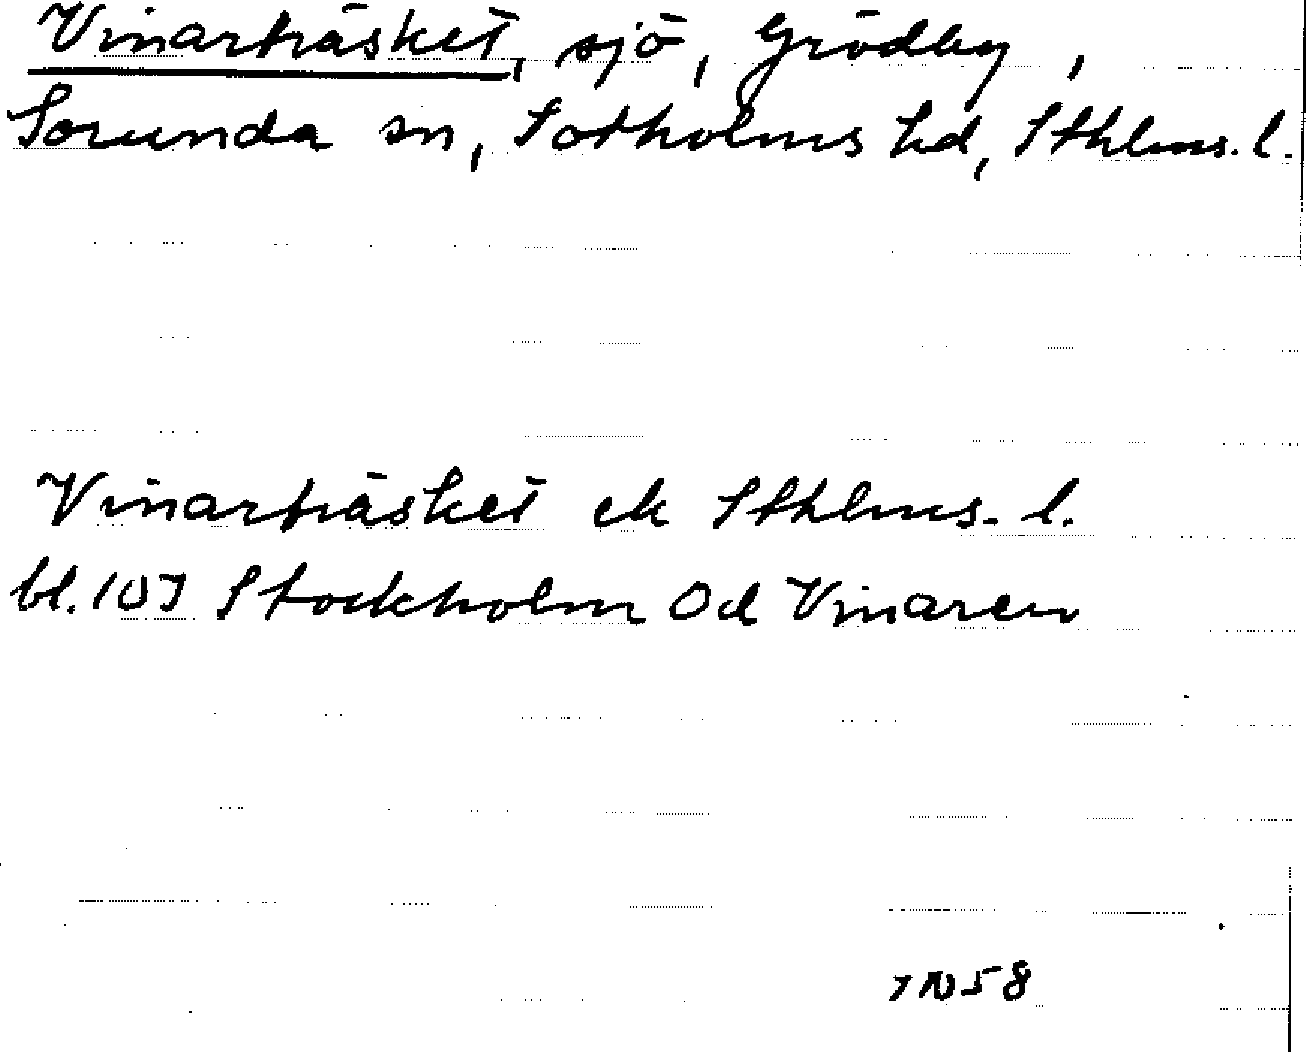 Vinarträsket, sjö, Grödby,
Sorunda sn, Sotholms hd, Sthlms. l.
Vinarträsket ek Sthlms. l.
bl. 107 Stockholm Od Vinaren